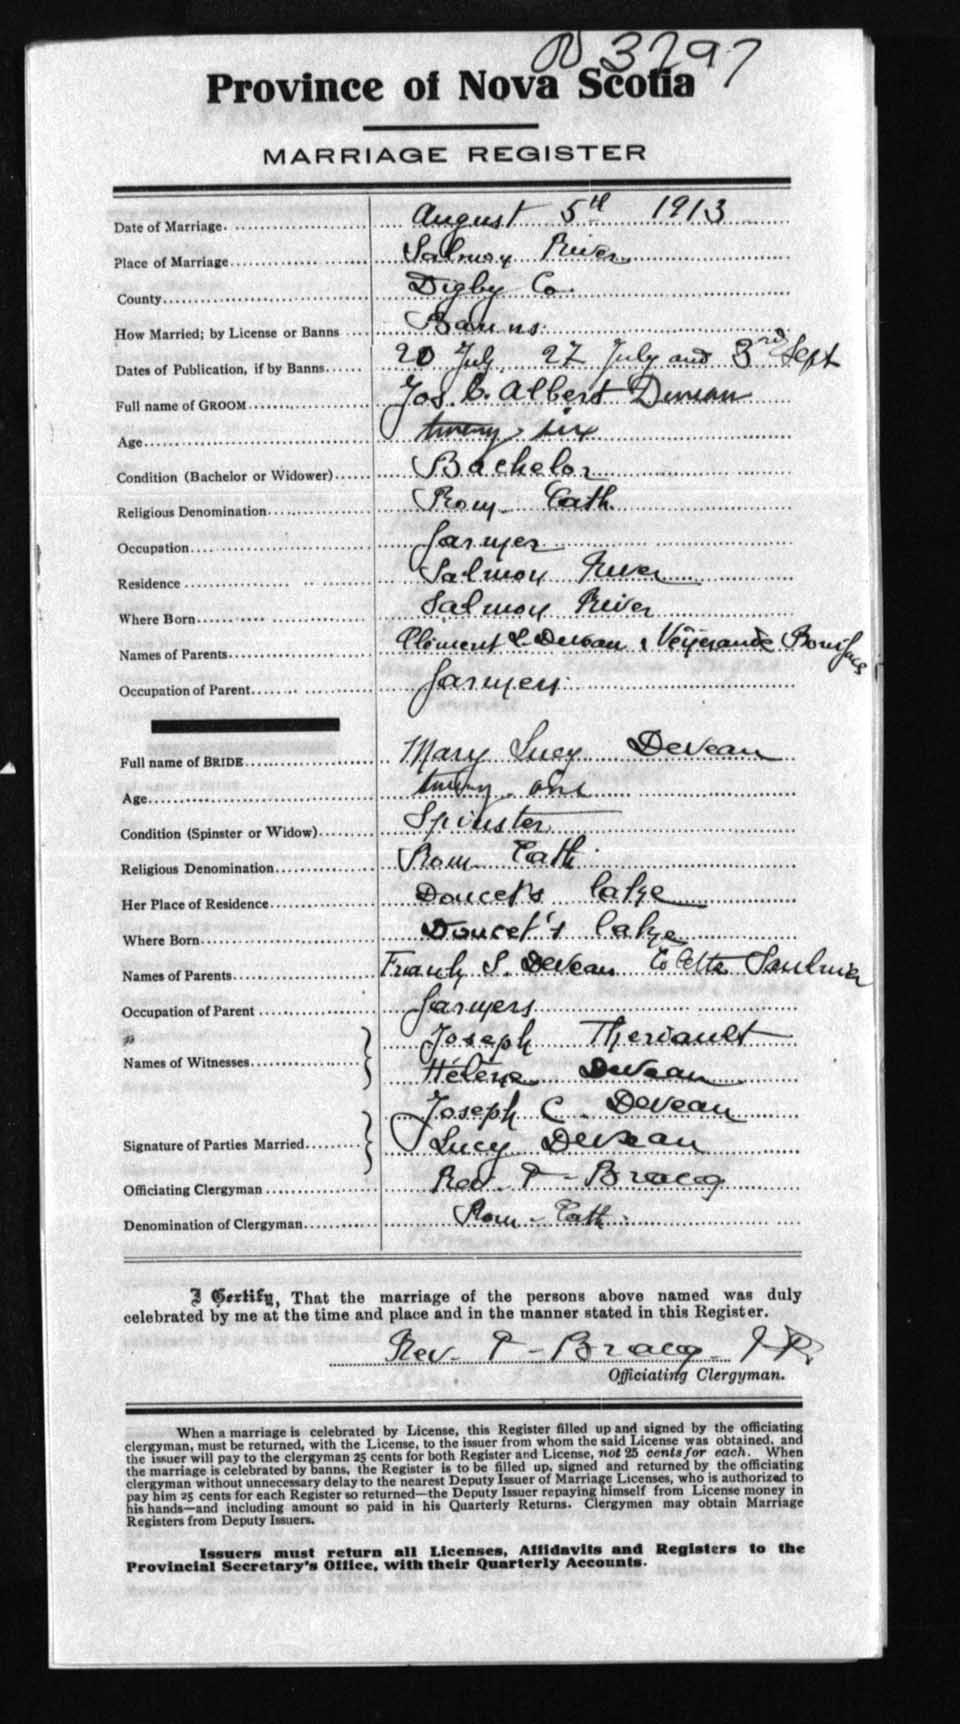 N 3797
Province of Nova Scotia
MARRIAGE REGISTER
Date of Marriage. August 5th 1913
Place of Marriage Salmon River
County Digby Co.
How Married; by License or Banns Banns
Dates of Publication, if by Banns 20 July 27 July and 3rd Sept
Full name of GROOM Jos. C. Albert Deveau
Age twenty six
Condition (Bachelor or Widower) Bachelor
Religious Denomination Rom Cath.
Occupation farmer
Residence Salmon River
Where Born Salmon River
Names of Parents Clément L. Deveau & Boniface
Occupation of Parent farmers
Full name of BRIDE Mary Lucy Deveau
Age twenty one
Condition (Spinster or Widow) Spinster
Religious Denomination Rom Cath
Her Place of Residence Doucet's lake
Where Born Doucet's lake
Names of Parents Frank S. Deveau Colette Saulnier
Occupation of Parent farmers
"
Names of Witnesses Joseph Theriault
Hélène Deveau
Joseph C. Deveau
Signature of Parties Married Lucy Deveau
Officiating Clergyman Rev. P - Bracq
Denomination of Clergyman Rom - Cath
I Certify, That the marriage of the persons above named was duly
celebrated by me at the time and place and in the manner stated in this Register.
Rev. P - Bracq
Officiating Clergyman.
When a marriage is celebrated by License, this Register filled up and signed by the officiating
clergyman, must be returned, with the License, to the issuer from whom the said License was obtained, and
the issuer will pay to the clergyman 25 cents for both Register and License, not 25 cents for each. When
the marriage is celebrated by banns, the Register is to be filled up, signed and returned by the officiating
clergyman without unnecessary delay to the nearest Deputy Issuer of Marriage Licenses, who is authorized to
pay him 25 cents for each Register so returned—the Deputy Issuer repaying himself from License money in
his hands—and including amount so paid in his Quarterly Returns. Clergymen may obtain Marriage
Registers from Deputy Issuers.
Issuers must return all Licenses, Affidavits and Registers to the
Provincial Secretary's Office, with their Quarterly Accounts.